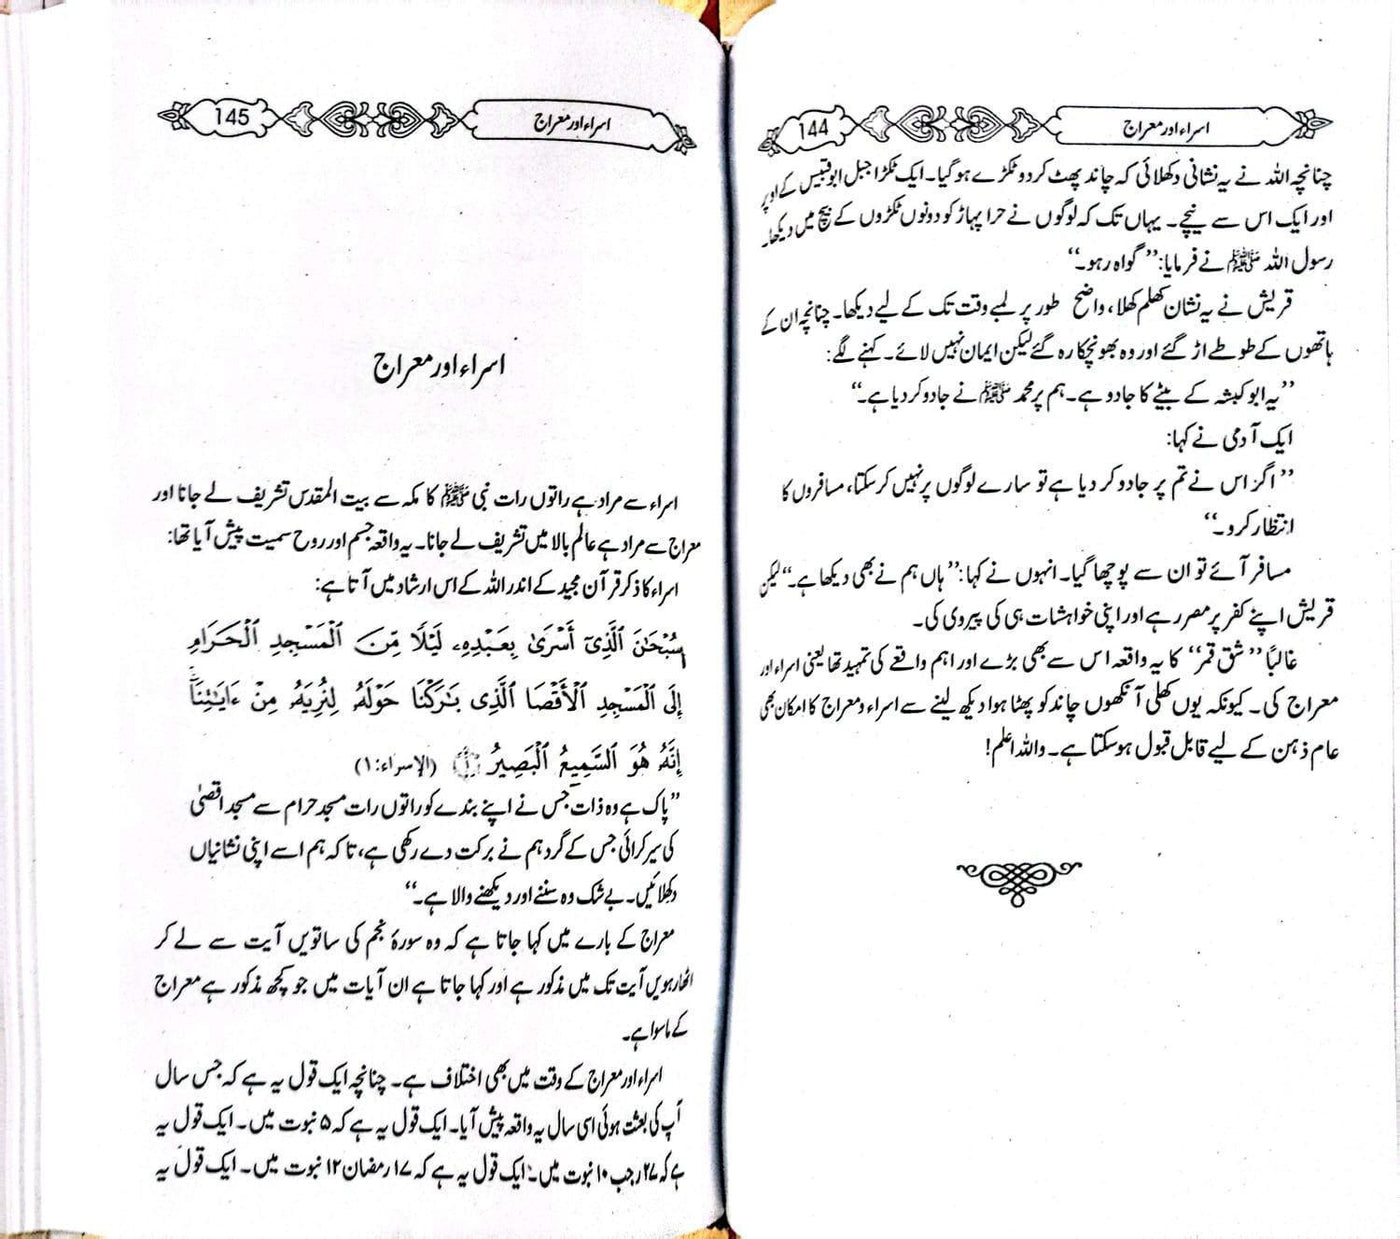 اسراء اور معراج
144
چنانچہ اللہ نے یہ نشانی دکھلائی کہ چاند پھٹ کر دو ٹکڑے ہو گیا۔ ایک ٹکڑا جبل ابو قبیس کے اوپر
اور ایک اس سے نیچے۔ یہاں تک کہ لوگوں نے حرا پہاڑ کو دونوں ٹکڑوں کے بیچ میں دیکھا۔
رسول اللہ ﷺ نے فرمایا: ’’گواہ رہو۔‘‘
قریش نے یہ نشان کھلم کھلا، واضح طور پر لمبے وقت تک کے لیے دیکھا۔ چنانچہ ان کے
ہاتھوں کے طوطے اڑ گئے اور وہ بھونچکا رہ گئے لیکن ایمان نہیں لائے۔ کہنے لگے:
’’یہ ابو کبشہ کے بیٹے کا جادو ہے۔ ہم پر محمد ﷺ نے جادو کر دیا ہے۔‘‘
ایک آدمی نے کہا:
’’اگر اس نے تم پر جادو کر دیا ہے تو سارے لوگوں پر نہیں کر سکتا، مسافروں کا
انتظار کرو۔‘‘
مسافر آئے تو ان سے پوچھا گیا۔ انہوں نے کہا: ’’ہاں ہم نے بھی دیکھا ہے۔‘‘ لیکن
قریش اپنے کفر پر مصر رہے اور اپنی خواہشات ہی کی پیروی کی۔
غالباً ’’شق قمر‘‘ کا یہ واقعہ اس سے بھی بڑے اور اہم واقعے کی تمہید تھا یعنی اسراء اور
معراج کی۔ کیونکہ یوں کھلی آنکھوں چاند کو پھٹا ہوا دیکھ لینے سے اسراء و معراج کا امکان بھی
عام ذہن کے لیے قابل قبول ہو سکتا ہے۔ واللہ اعلم!
اسراء اور معراج
145
اسراء اور معراج
اسراء سے مراد ہے راتوں رات نبی ﷺ کا مکہ سے بیت المقدس تشریف لے جانا اور
معراج سے مراد ہے عالم بالا میں تشریف لے جانا۔ یہ واقعہ جسم اور روح سمیت پیش آیا تھا:
اسراء کا ذکر قرآن مجید کے اندر اللہ کے اس ارشاد میں آتا ہے:
سُبْحَٰنَ ٱلَّذِىٓ أَسْرَىٰ بِعَبْدِهِۦ لَيْلًا مِّنَ ٱلْمَسْجِدِ ٱلْحَرَامِ
إِلَى ٱلْمَسْجِدِ ٱلْأَقْصَا ٱلَّذِى بَٰرَكْنَا حَوْلَهُۥ لِنُرِيَهُۥ مِنْ ءَايَٰتِنَآ ۚ
إِنَّهُۥ هُوَ ٱلسَّمِيعُ ٱلْبَصِيرُ ۝١ (الإسراء:۱)
’’پاک ہے وہ ذات جس نے اپنے بندے کو راتوں رات مسجد حرام سے مسجد اقصیٰ
کی سیر کرائی جس کے گرد ہم نے برکت دے رکھی ہے، تا کہ ہم اسے اپنی نشانیاں
دکھلائیں۔ بے شک وہ سننے اور دیکھنے والا ہے۔‘‘
معراج کے بارے میں کہا جاتا ہے کہ وہ سورۂ نجم کی ساتویں آیت سے لے کر
اٹھارہویں آیت تک میں مذکور ہے اور کہا جاتا ہے ان آیات میں جو کچھ مذکور ہے معراج
کے ماسوا ہے۔
اسراء اور معراج کے وقت میں بھی اختلاف ہے۔ چنانچہ ایک قول یہ ہے کہ جس سال
آپ کی بعثت ہوئی اسی سال یہ واقعہ پیش آیا۔ ایک قول یہ ہے کہ ۵ نبوت میں۔ ایک قول یہ
ہے کہ ۲۷ رجب ۱۰ نبوت میں۔ ایک قول یہ ہے کہ ۱۷ رمضان ۱۲ نبوت میں۔ ایک قول یہ